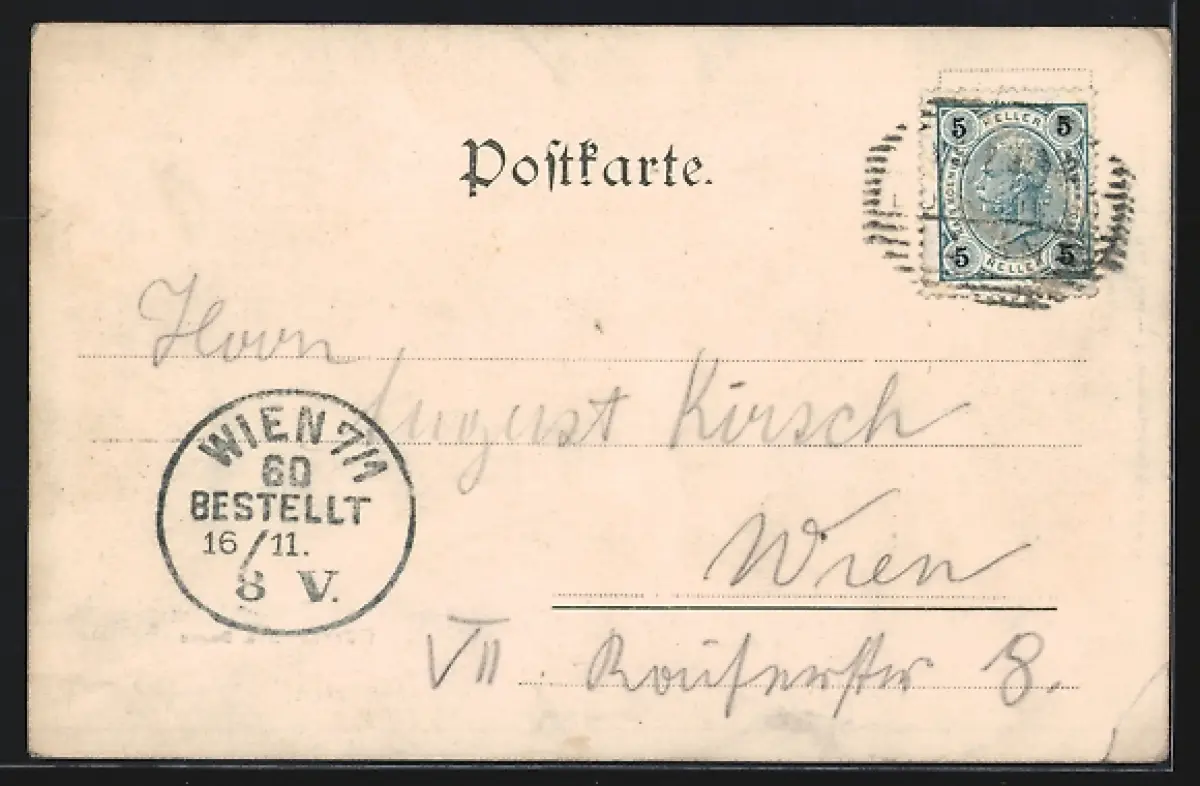 Postkarte.
5 HELLER 5
5 HELLER 5
Herrn
August Kirsch
Wien
VII. 8.
WIEN 7/1
60
BESTELLT
16/11.
8 V.